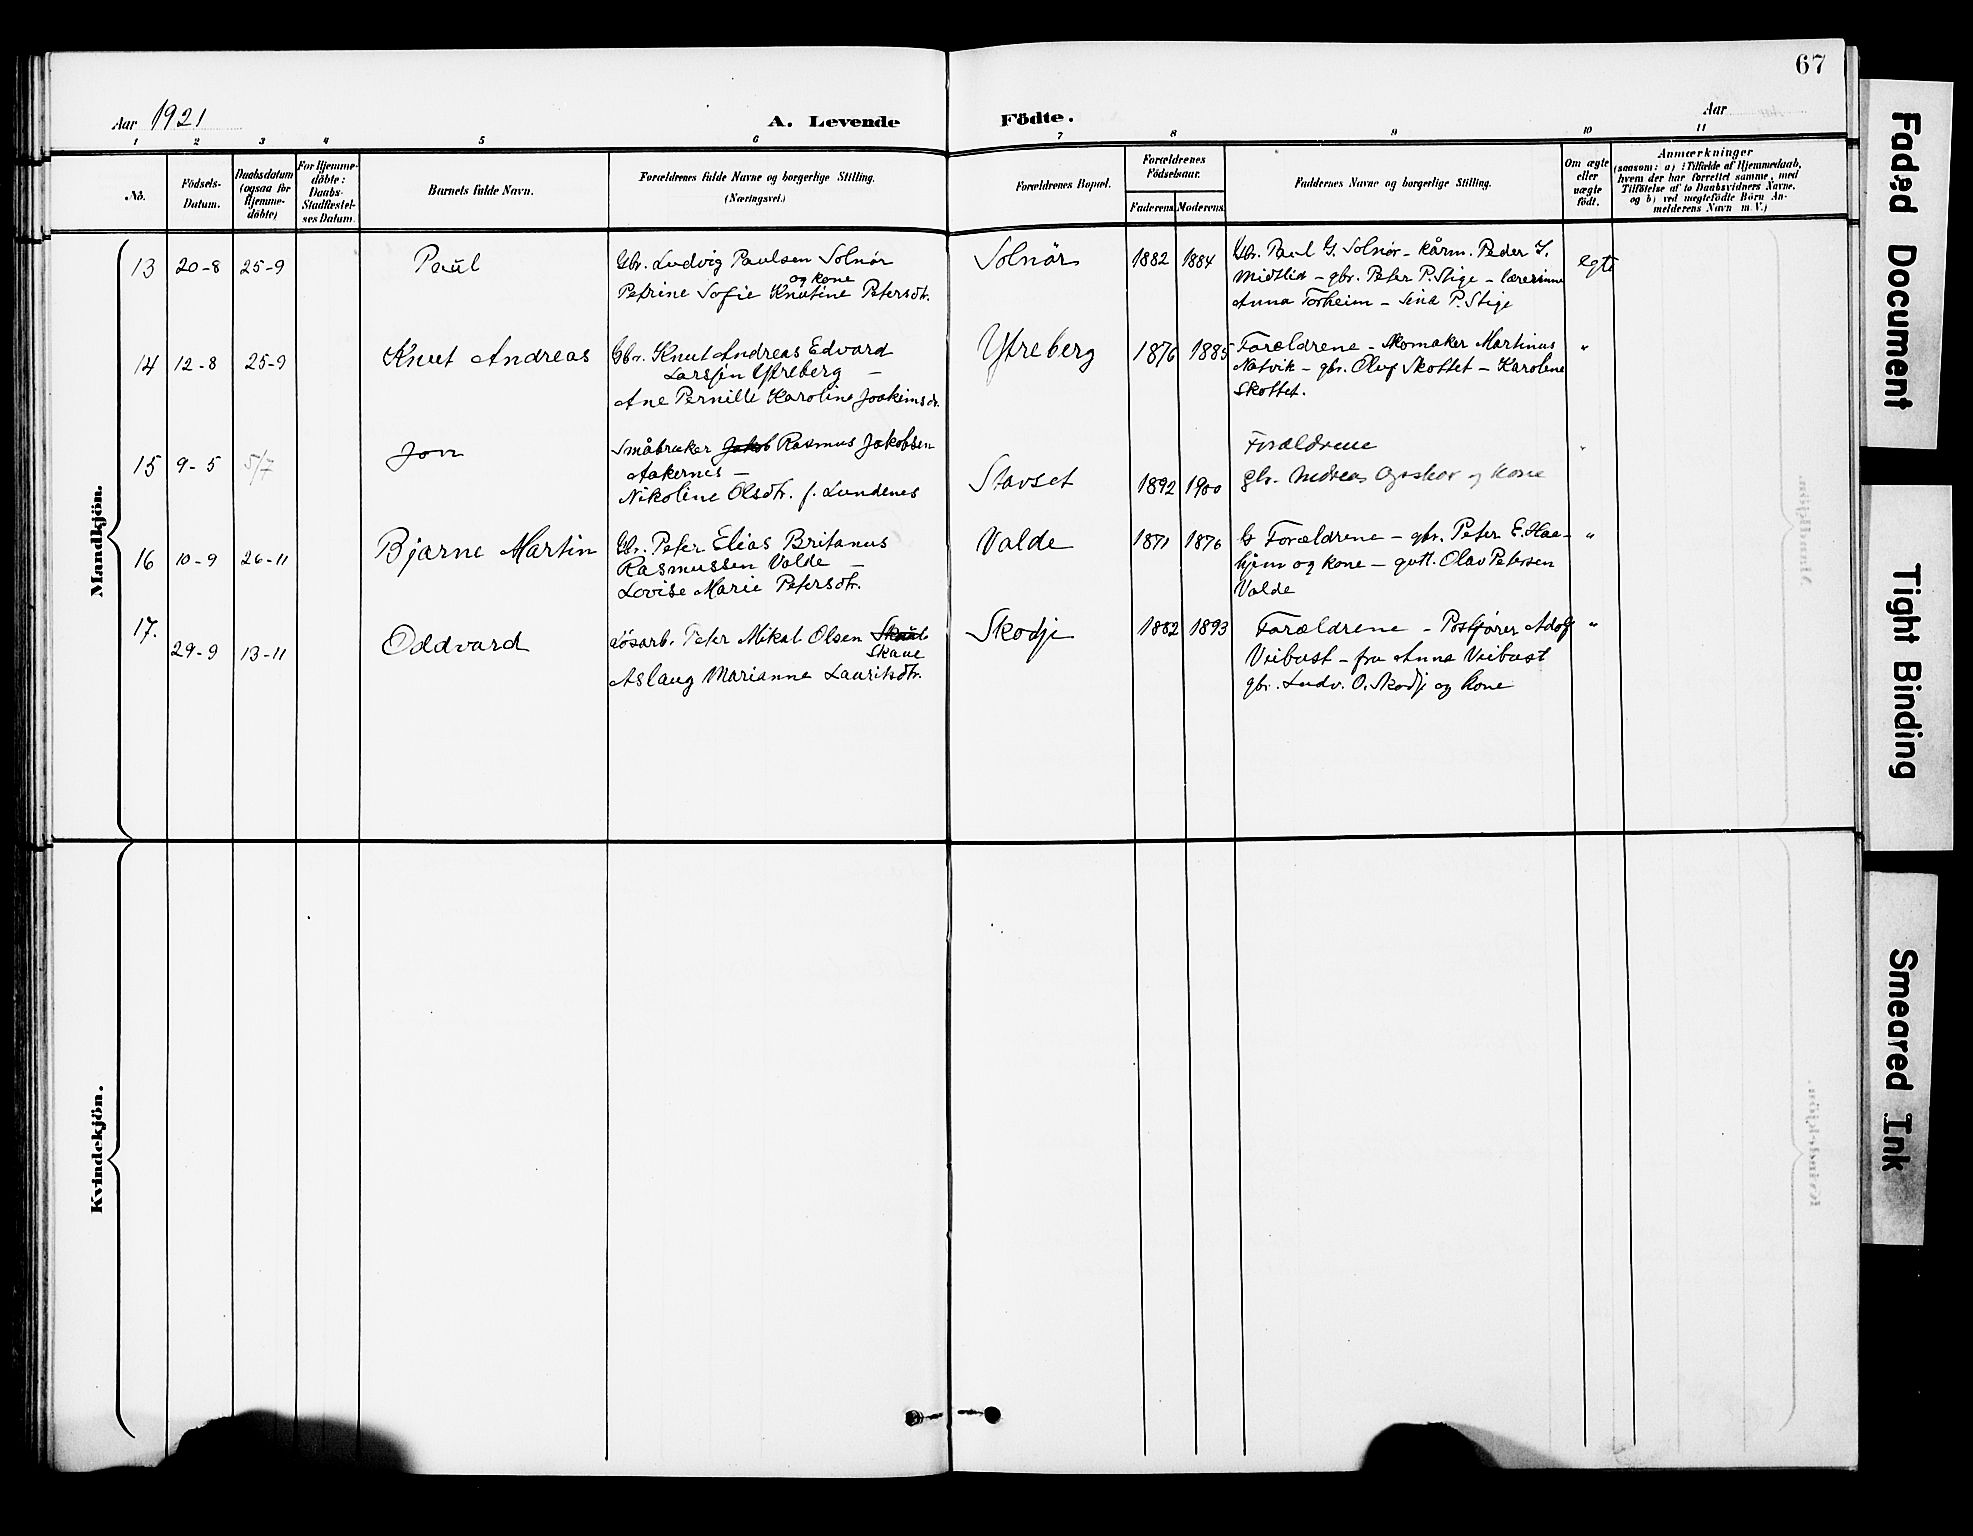 67
Aar 1921
A. Levende Födte.
Aar
1 2 3 4 5 6 7 8 9 10 11
No.
Födsels-
Datum.
Daabsdatum
(ogsaa for
Hjemme-
döbte)
For Hjemme-
döbte:
Daabs-
Stadfæstel-
ses Datum.
Barnets fulde Navn.
Forældrenes fulde Navne og borgerlige Stilling.
(Næringsvei.)
Forældrenes Bopæl.
Forældrenes
Födselsaar.
Faderens Moderens
Faddernes Navne og borgerlige Stilling.
Om ægte
eller
uægte
födt.
Anmærkninger
(saasom: a) i Tilfælde af Hjemmedaab,
hvem der har forrettet samme, med
Tilföielse af to Daabsvidners Navne,
og b) ved uægtefödte Börn An-
melderens Navn m. V.)
Mandkjön.
13 20-8 25-9 Paul
Gbr. Ludvig Paulsen Solnör
og kone
Petrine Sofie Knutine Petersdtr.
Solnör 1882 1884
Gbr. Paul G. Solnör - kårm. Peder I.
Midtlid - gbr. Peter P. Stige - lærerinne
Anna Torheim - Sina P. Stige
egte
14 12-8 25-9 Knut Andreas
Gbr. Knut Andreas Edvard
Larssen Ytreberg -
Ane Pernille Karoline Joakimsdr.
Ytreberg 1876 1885
Forældrene - Skomaker Martinus
Natvik - gbr. Oluf Skottet - Karoline
Skottet.
"
15 9-5 5/7 Jon
Småbruker Jakob Rasmus Jakobsen
Aakernes -
Nikoline Olsdtr. f. Lundenes
Stavset 1892 1900
Forældrene
gbr. Andreas og kone
"
16 10-9 26-11 Bjarne Martin
Gbr. Peter Elias Britanus
Rasmussen Valde -
Lovise Marie Petersdtr.
Valde 1871 1876
G Forældrene - gbr. Peter E. Haa-
hjem og kone - gutt. Olav Petersen
Valde
"
17. 29-9 13-11 Oddvard
Løsarb. Peter Mikal Olsen
Skaue
Aslaug Marianne Lauritsdtr.
Skodje 1882 1893
Forældrene - Postfører Adolf
Viebust - fru Anna Viebust
gbr. Ludv. O. Skodje og kone
"
Kvindekjön.
Faded Document
Tight Binding
Smeared Ink